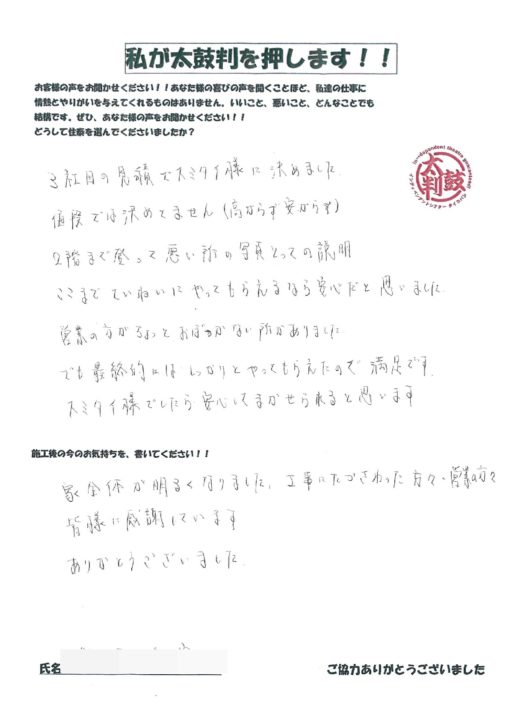 私が太鼓判を押します！！
お客様の声をお聞かせください！！あなた様の喜びの声を聞くことほど、私達の仕事に
情熱とやりがいを与えてくれるものはありません。いいこと、悪いこと、どんなことでも
結構です。ぜひ、あなた様の声をお聞かせください！！
どうして住泰を選んでくださいましたか？
太鼓判
3社目の見積でスミタイ様に決めました。
値段では決めてません（高からず安からず）
2階まで登って悪い所の写真とっての説明
ここまでていねいにやってもらえるなら安心だと思いました。
営業の方がちょっとおぼつかない所がありました
でも最終的にはしっかりとやってもらえたので満足です。
スミタイ様でしたら安心してまかせられると思います
施工後の今のお気持ちを、書いてください！！
家全体が明るくなりました。工事にたずさわった方々・営業の方々
皆様に感謝しています
ありがとうございました。
氏名
ご協力ありがとうございました